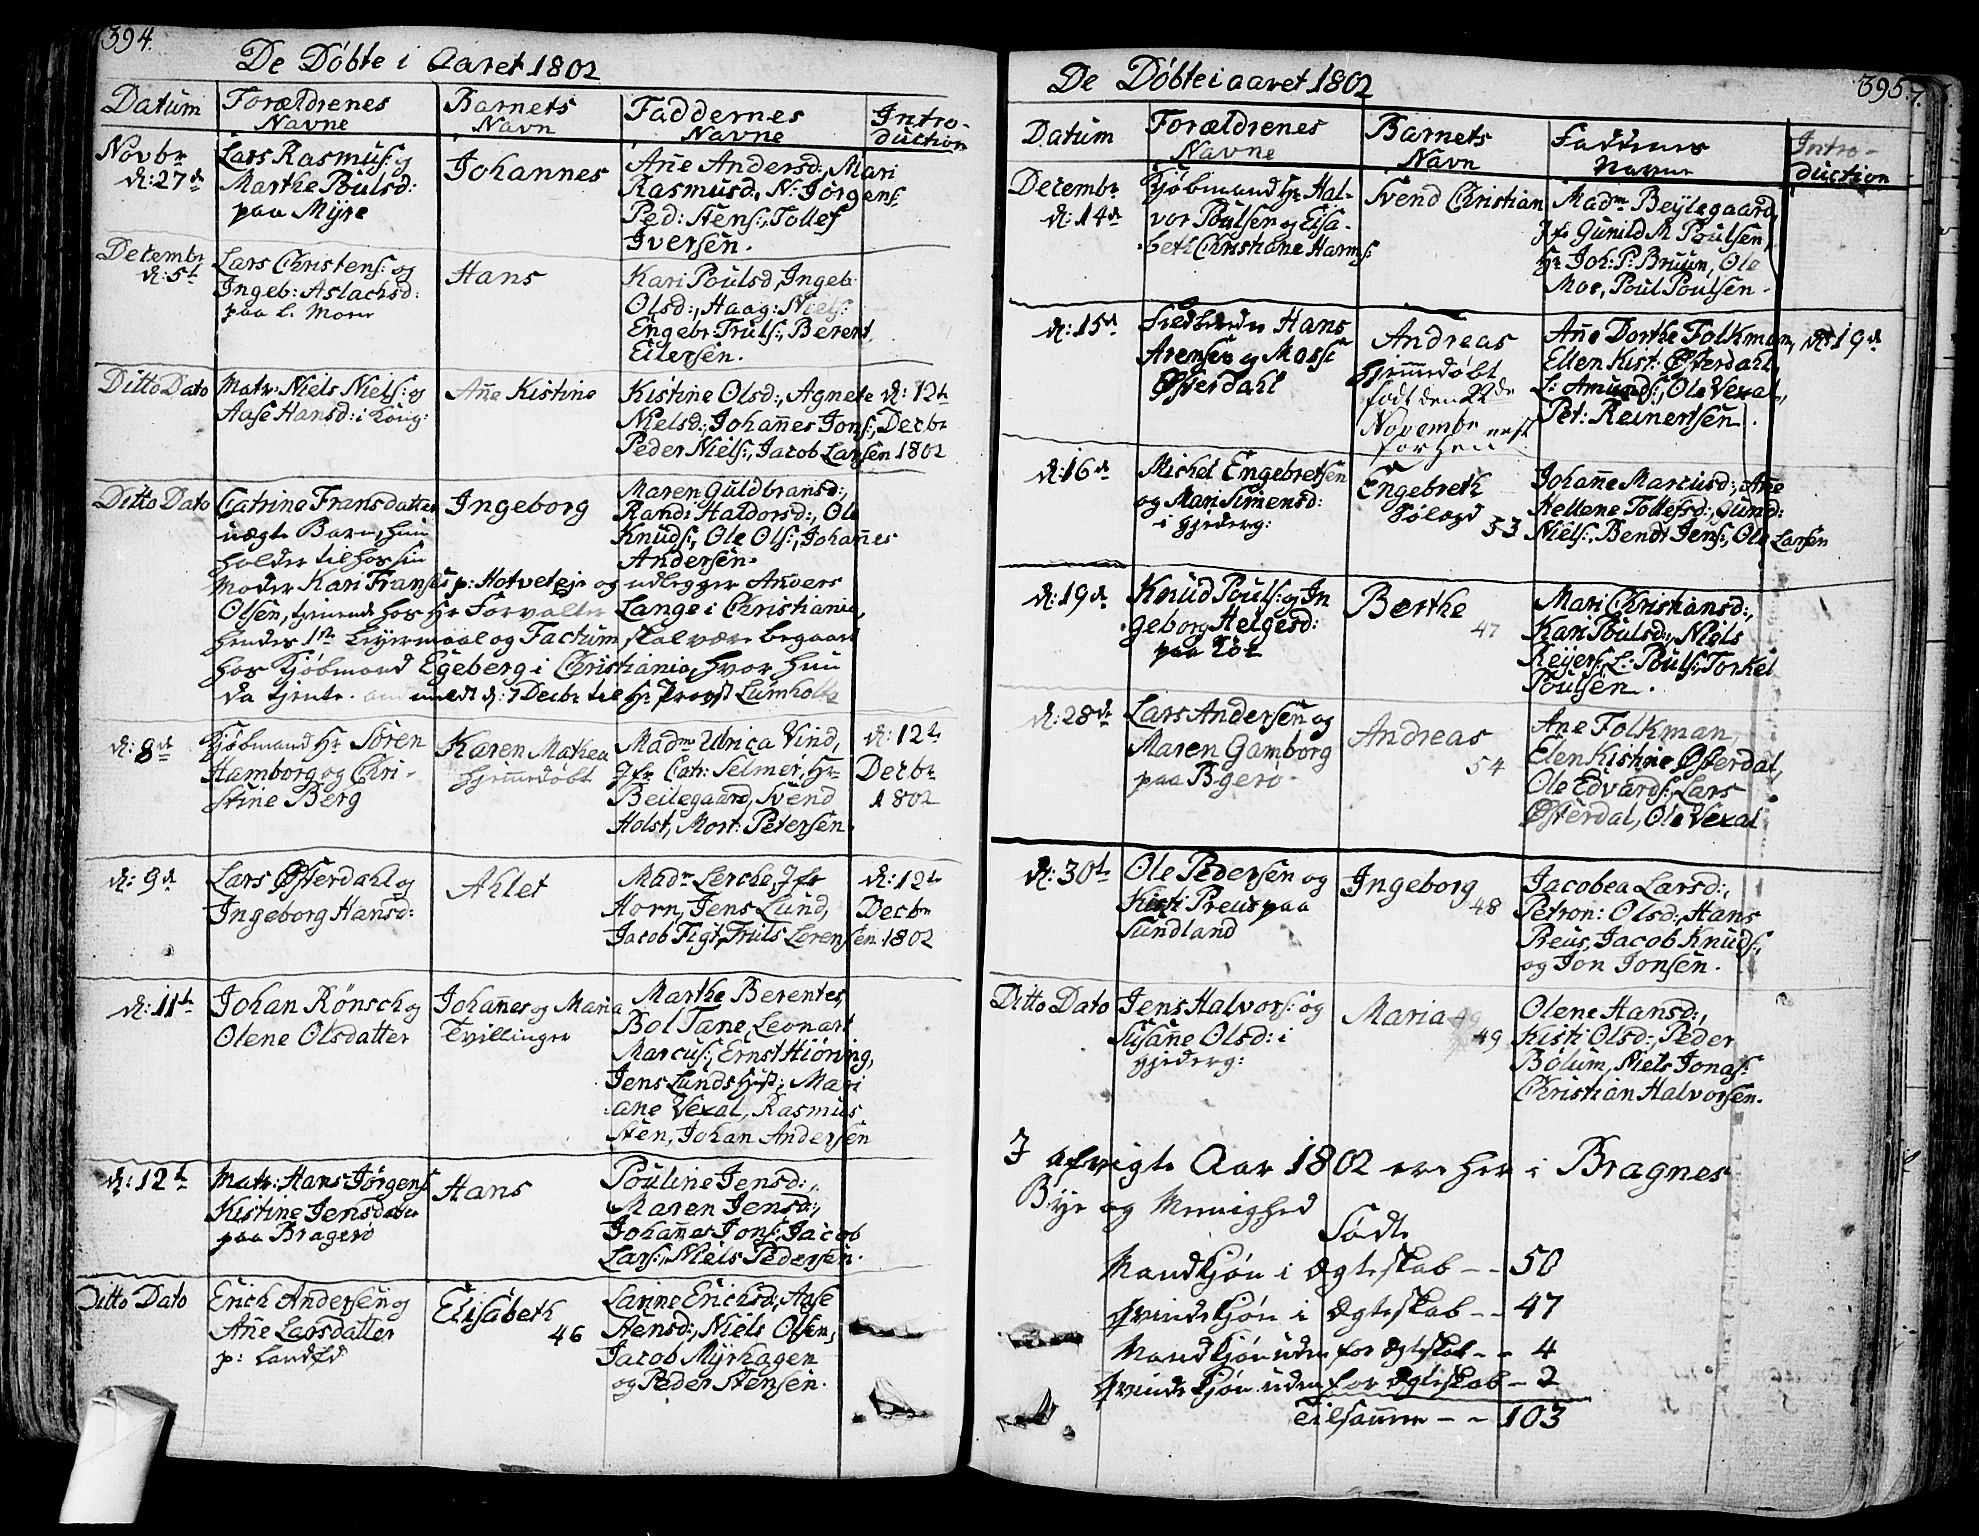 394.
De Döbte i Aaret 1802
Datum
Forældrenes Navne
Barnets Navn
Faddernes Navne
Intro-
duction
Novbr
d: 27de
Lars Rasmus: og
Marthe Poulsd:
paa Myre
Johannes
Añe Andersd:, Mari
Rasmusd:, N: Jörgens:
Ped: Stens:, Tollef
Iversen.
Decembr
d: 5te
Lars Christens: og
Ingeb: Aslachsd:
paa L: Moen
Hans
Kari Poulsd, Ingeb:
Olsd:, Haag: Niels:
Engebr: Truls:, Berent
Eilersen.
Ditto Dato
Matr: Niels Niels: og
Aase Hansd: i Kong:
Añe Kistine
Kistine Olsd:, Agnete
Nielsd:, Johañes Jons:,
Peder Niels:, Jacob Larsen
d: 12te
Decbr
1802
Ditto Dato
Catrine Fransdatter
uægte Barn, hun
holder til hos sin
Moder Kari Frans: p: Hotveteje og udlegger Anders
Olsen, tjenende hos Hr Forvalter Lange i Christiania,
hendes 1ste Leyermaal og Factum skal være begaaet
hos Kjöbmand Egeberg i Christiania, hvor hun
da tjente. anmeldt d: 7 Decbr til Hr Provst Lumholtz
Ingeborg
Maren Guldbransd:,
Randi Haldorsd:, Ole
Knuds:, Ole Ols:, Johañes
Andersen.
d: 8de
Kjöbmand Hr Sören
Hamborg og Chri-
stine Berg
Karen Mathea
hjemedöbt
Madme Ulrica Vind,
Jfr Catr: Selmer, Hr
Beilegaard, Svend
Holst, Mort: Petersen.
d: 12te
Decbr
1802
d: 9de
Lars Østerdahl og
Ingeborg Hansd:
Ahlet
Madme Lerche, Jfr
Horn, Jens Lund,
Jacob Figt, Truls Lorensen
d: 12te
Decbr
1802
d: 11te
Johan Rönsch og
Olene Olsdatter
Johañes og Maria
Tvillinger
Marthe Berentes,
Bol Tane, Leonart
Marcus:, Ernst Hiöring,
Jens Lunds Hust:, Mari
ane Vexal, Rasmus
Sten, Johan Andersen
d: 12te
Matr: Hans Jörgens:
Kistine Jensdatter
paa Bragerö
Hans
Pouline Jensd:,
Maren Jensd:,
Johañes Jons:, Jacob
Lars:, Niels Pedersen.
Ditto Dato
Erich Andersen og
Añe Larsdatter
p: Landfd
Elisabeth
46
Larine Erichsd:, Aase
Stensd:, Niels Olsen,
Jacob Myrhagen
og Peder Stensen.
395.
De Döbte i aaret 1802
Datum
Forældrenes Navne
Barnets Navn
Faddernes Navne
Intro-
duction
Decembr
d: 14de
Kjöbmand Hr Hal-
vor Poulsen og Elsa-
beth Christiane Harms:
Svend Christian
Madme Beylegaard,
Jfr Gunild M Poulsen,
Hr Joh: P: Bruun, Ole
Moe, Poul Poulsen.
d: 15de
Hans
Arensen og
Østerdahl
Andreas
hjemmedöbt
födt den 22de
Novembr nest
forhen
Añe Dorthe Folkman,
Ellen Kist: Østerdahl,
L: Amunds:, Ole Vexal,
Pet: Reinertsen.
d: 19de
d: 16de
Michel Engebretsen
og Mari Simensd:
i Gjederg:
Engebreth
53
Johañe Marcusd:, Añe
Hellene Tollefsd:, Gund:
Niels:, Bendt Jens:, Ole Larsen
d: 19de
Knud Pouls: og In
geborg Helgesd:
paa
Berthe
47
Mari Christiansd:,
Kari Poulsd:, Niels
Reyers:, L: Pouls:, Torkel
Poulsen.
d: 28de
Lars Andersen og
Maren Gamborg
paa Bgerö
Andreas
54
Ane Folkman,
Elen Kistine Østerdal,
Ole Edvards:, Lars
Østerdal, Ole Vexal
d: 30te
Ole Pedersen og
Kisti Preus paa
Sundland
Ingeborg
48
Jacobea Larsd:,
Petron: Olsd:, Hans
Preus, Jacob Knuds:,
og Jon Jonsen.
Ditto Dato
Jens Halvors: og
Susañe Olsd: i
Gjederg:
Maria
49
Olene Hansd:,
Kisti Olsd:, Peder
Bölum, Niels Jonas:
Christian Halvorsen.
I afvigte Aar 1802 ere her i Bragnes
Bye og Menighed
Födte
Mandkjön i Ægteskab - - 50
Qvindekjön i Ægteskab - - 47
Mandkjön uden for Ægteskab - - 4
Qvindekjön uden for Ægteskab - 2
Tilsamen - - 103